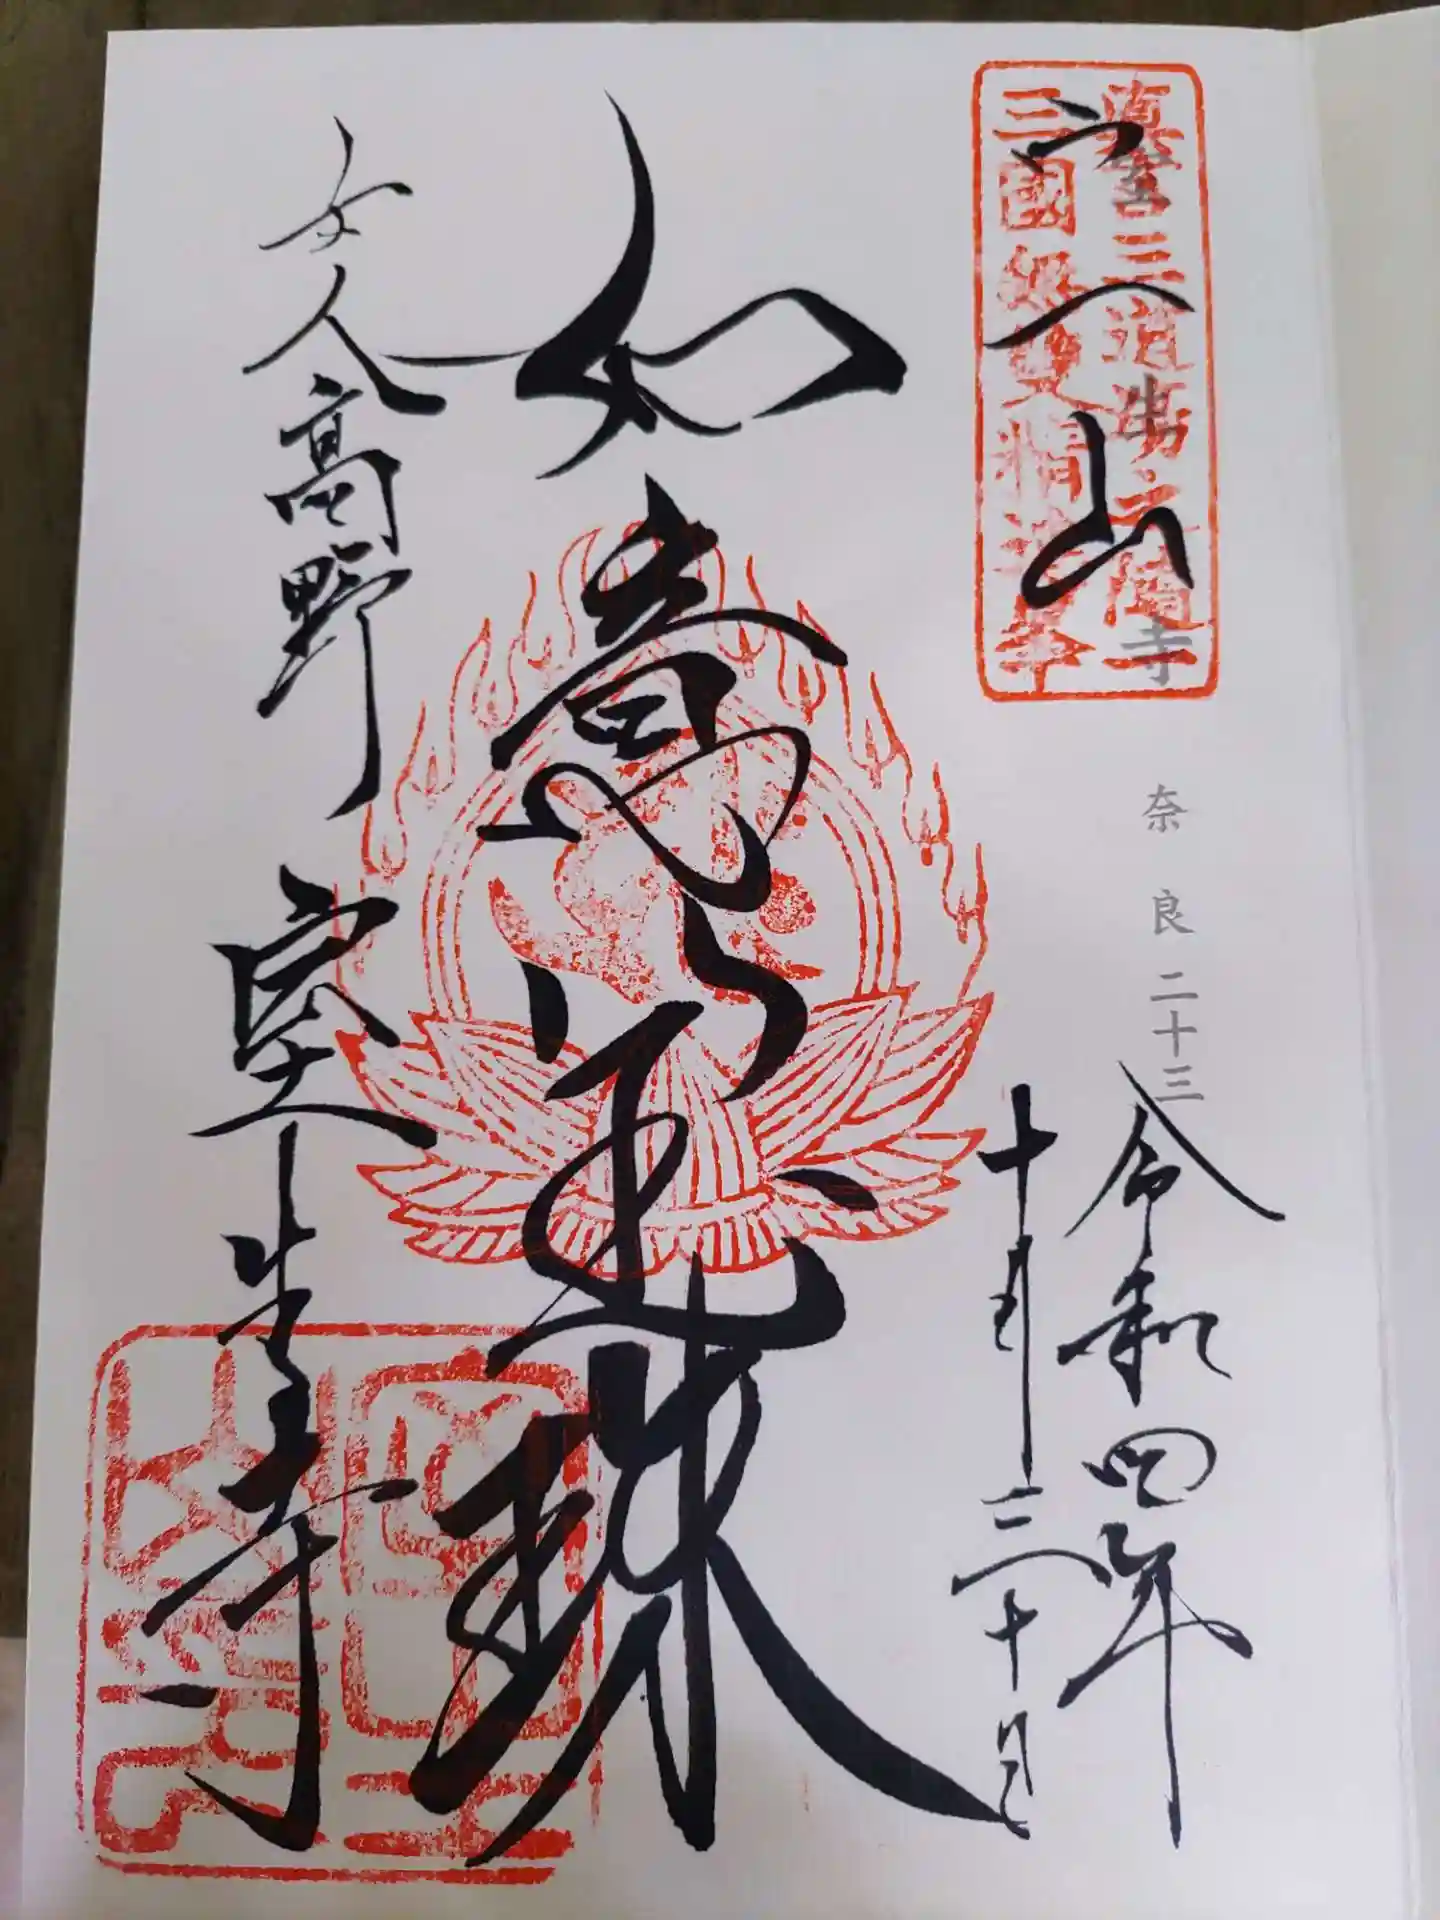 眞言三道場之随一
三國無雙精進峯
宀一山
室生寺
奈良二十三
令和四年
十月三十日
如意宝珠
女人高野
室生寺